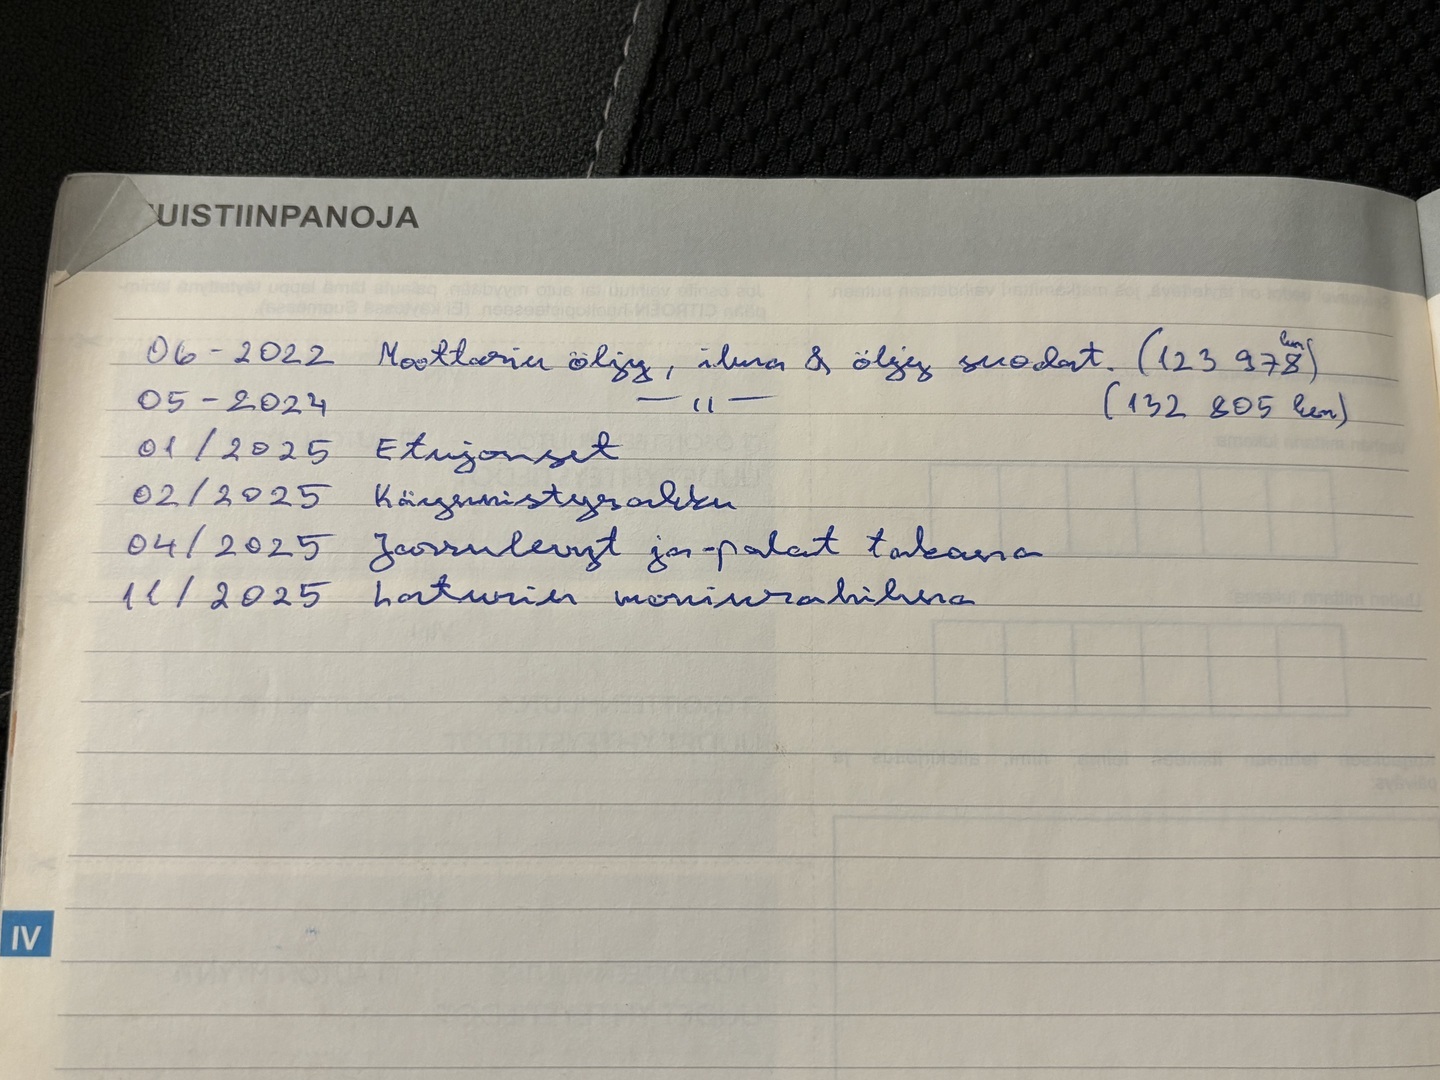 UISTIINPANOJA
06-2022 Moottorin öljy, ilma & öljy suodat. (123 978 km)
05-2024 — " — (132 805 km)
01/2025 Etujouset
02/2025 Käynnistysakku
04/2025 Jarrulevyt ja -palat takana
11/2025 Laturin moniurahihna
IV